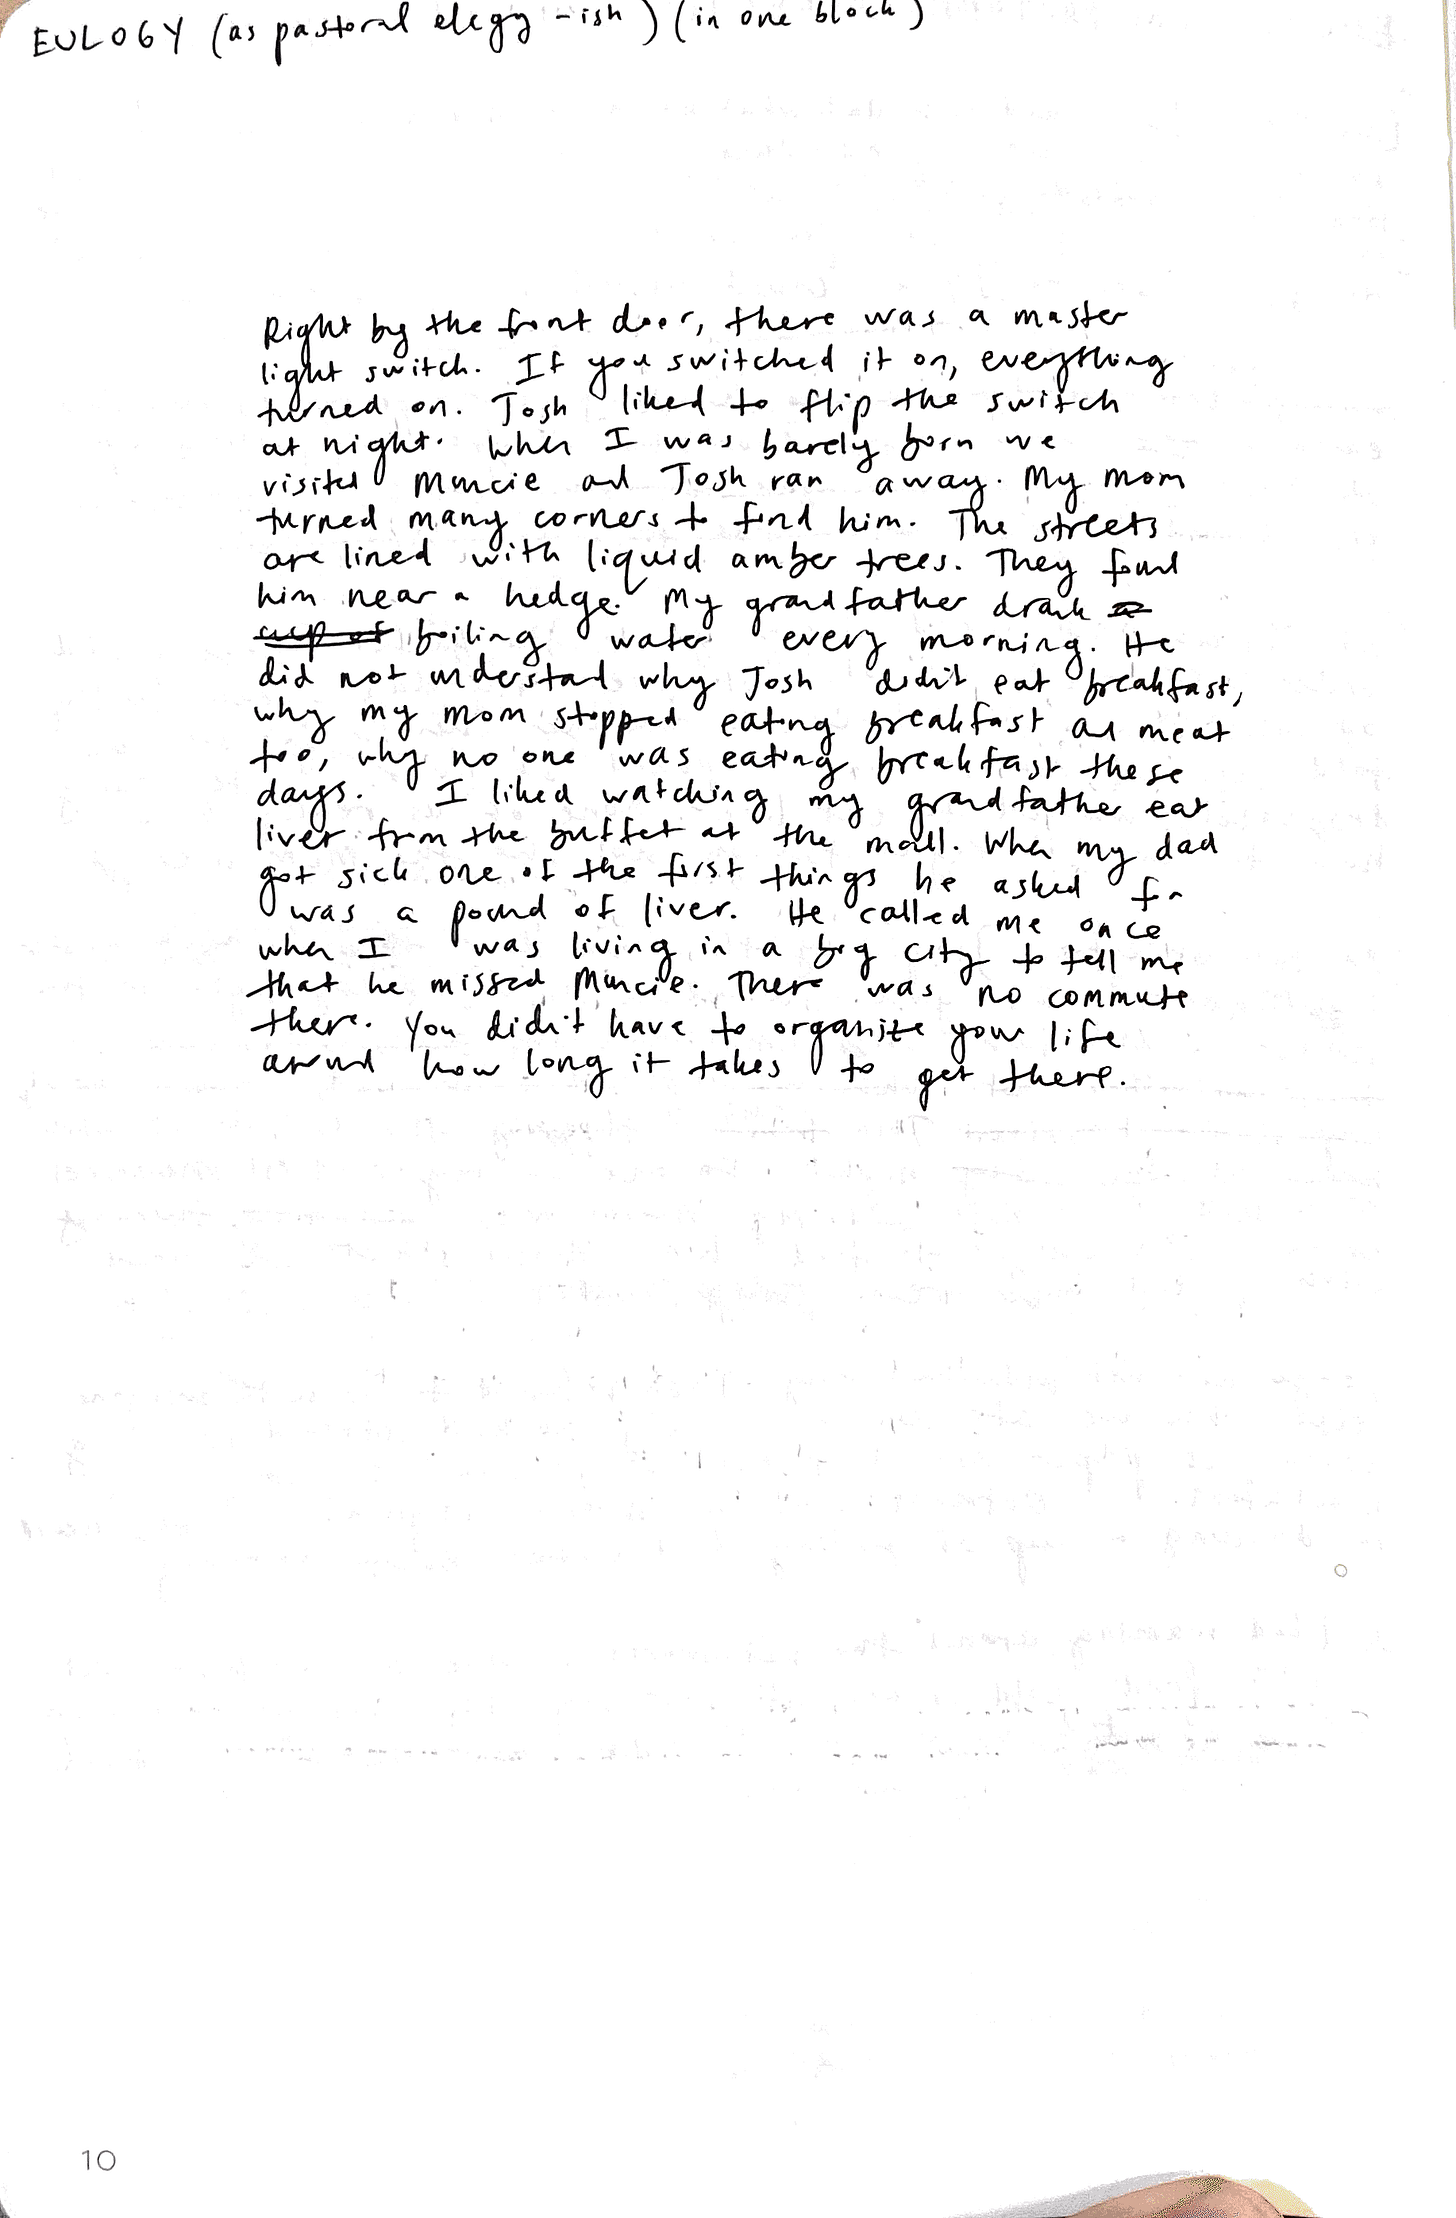 EULOGY (as pastoral elegy -ish) (in one block)
Right by the front door, there was a master
light switch. If you switched it on, everything
turned on. Josh liked to flip the switch
at night. When I was barely born we
visited Muncie and Josh ran away. My mom
turned many corners to find him. The streets
are lined with liquid amber trees. They found
him near a hedge. My grandfather drank a
cup of boiling water every morning. He
did not understand why Josh didn't eat breakfast,
why my mom stopped eating breakfast and meat
too, why no one was eating breakfast these
days. I liked watching my grandfather eat
liver from the buffet at the mall. When my dad
got sick one of the first things he asked for
was a pound of liver. He called me once
when I was living in a big city to tell me
that he missed Muncie. There was no commute
there. You didn't have to organize your life
around how long it takes to get there.
10